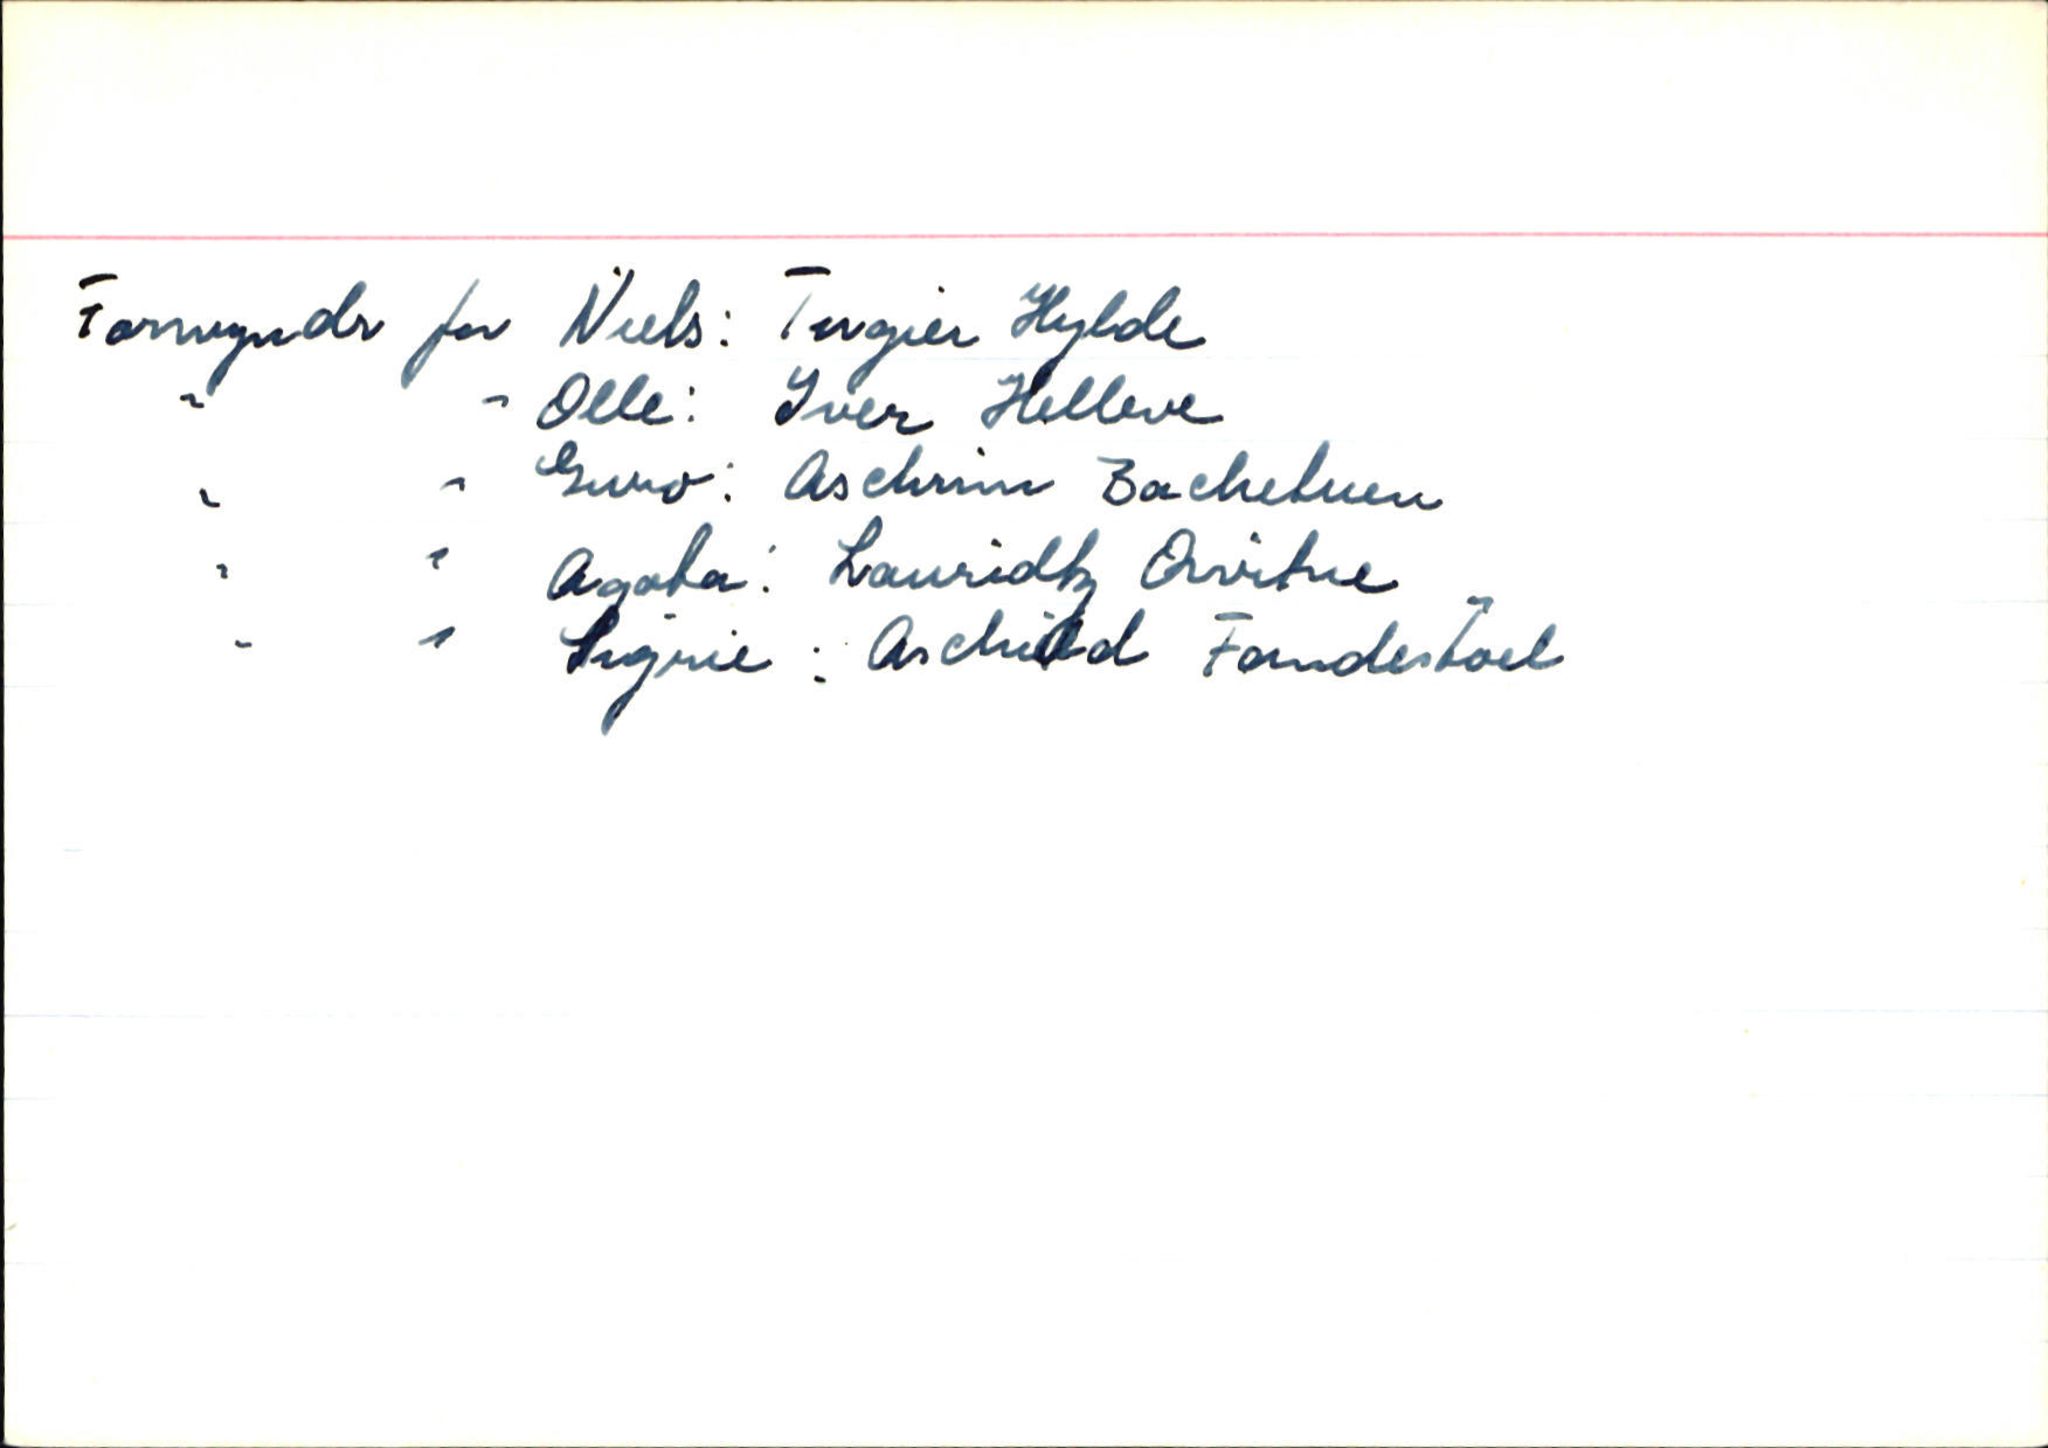 Formyndr for Niels: Torgier Hylde
" " Olle: Iver Helleve
" " Guro: Aschrim Bachetuen
" " Agata: Lauridtz Qvitne
" " Sigrie: Aschild Fondestoel